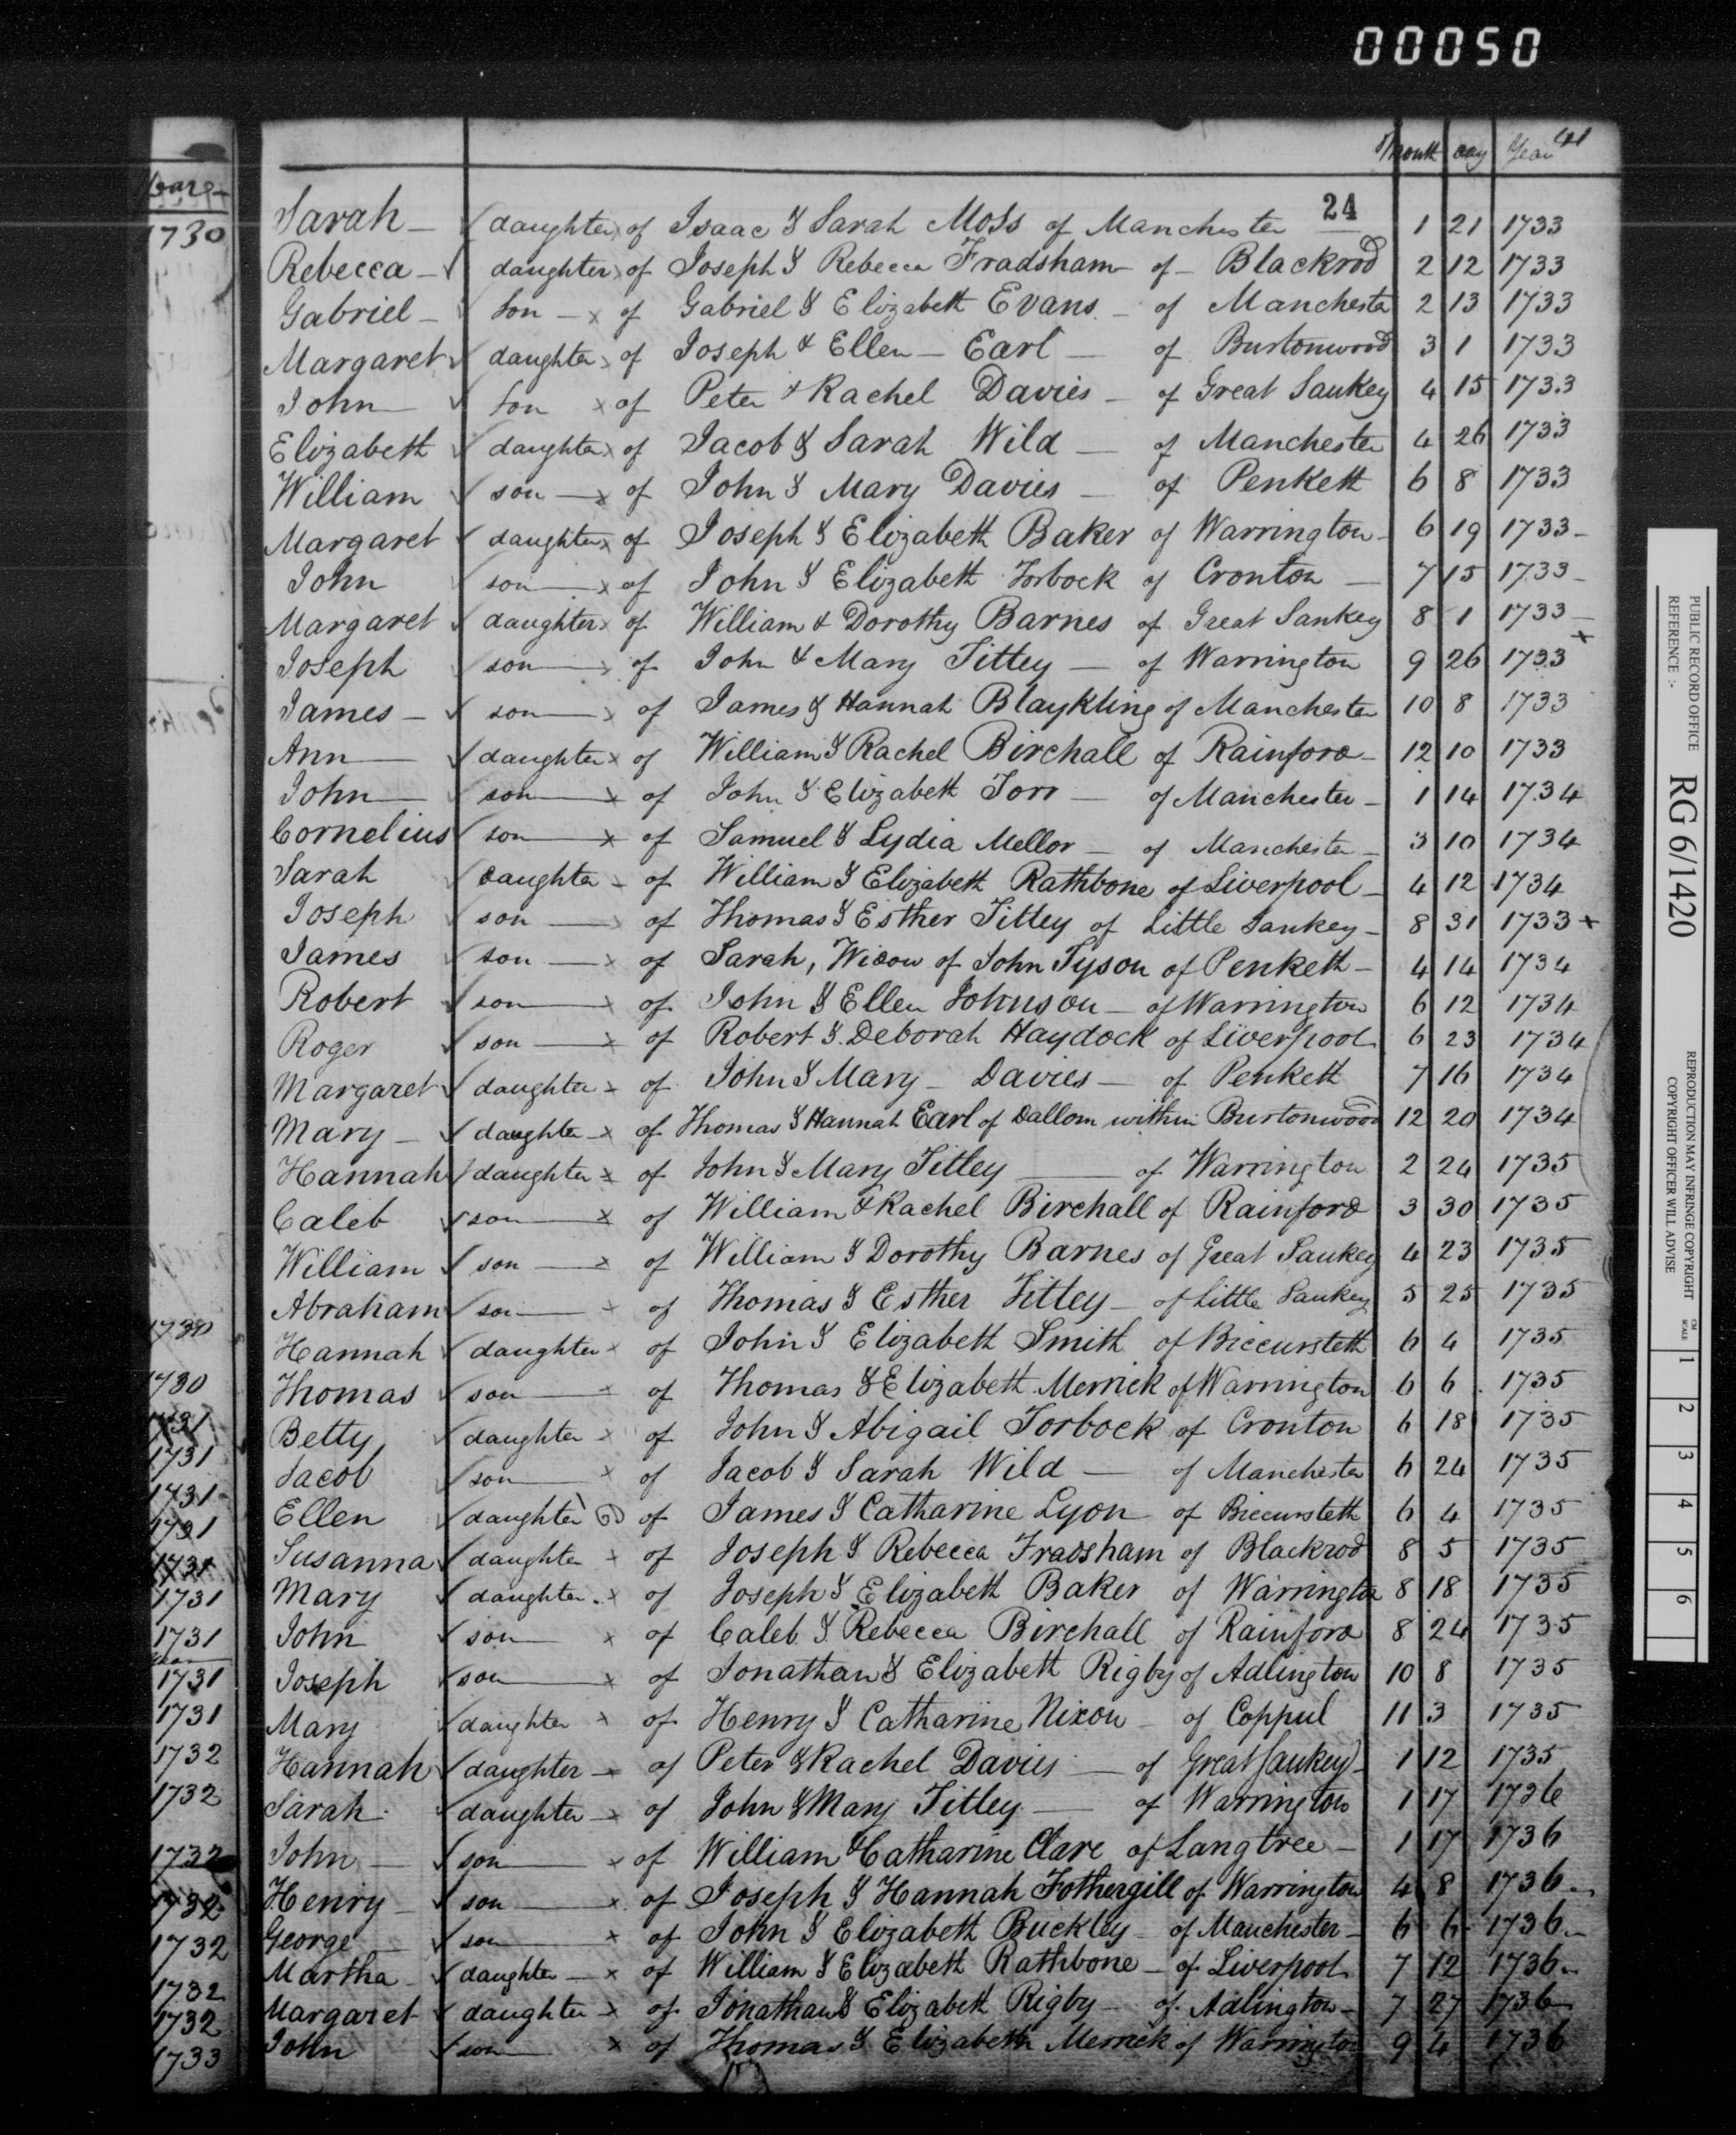 00050
Month day Year 41
24
Sarah daughter of Isaac & Sarah Moss of Manchester 1 21 1733
Rebecca daughter of Joseph & Rebecca Fradsham of Blackrod 2 12 1733
Gabriel son of Gabriel & Elizabeth Evans of Manchester 2 13 1733
Margaret daughter of Joseph & Ellen Earl of Burtonwood 3 1 1733
John son of Peter & Rachel Davies of Great Sankey 4 15 1733
Elizabeth daughter of Jacob & Sarah Wild of Manchester 4 26 1733
William son of John & Mary Davies of Penketh 6 8 1733
Margaret daughter of Joseph & Elizabeth Baker of Warrington 6 19 1733
John son of John & Elizabeth Torbock of Cronton 7 15 1733
Margaret daughter of William & Dorothy Barnes of Great Sankey 8 1 1733
Joseph son of John & Mary Titley of Warrington 9 26 1733 x
James son of James & Hannah Blaykling of Manchester 10 8 1733
Ann daughter of William & Rachel Birchall of Rainford 12 10 1733
John son of John & Elizabeth Torr of Manchester 1 14 1734
Cornelius son of Samuel & Lydia Mellor of Manchester 3 10 1734
Sarah daughter of William & Elizabeth Rathbone of Liverpool 4 12 1734
Joseph son of Thomas & Esther Titley of Little Sankey 8 31 1733 x
James son of Sarah, Widow of John Tyson of Penketh 4 14 1734
Robert son of John & Ellen Johnson of Warrington 6 12 1734
Roger son of Robert & Deborah Haydock of Liverpool 6 23 1734
Margaret daughter of John & Mary Davies of Penketh 7 16 1734
Mary daughter of Thomas & Hannah Earl of Dallom within Burtonwood 12 20 1734
Hannah daughter of John & Mary Titley of Warrington 2 24 1735
Caleb son of William & Rachel Birchall of Rainford 3 30 1735
William son of William & Dorothy Barnes of Great Sankey 4 23 1735
Abraham son of Thomas & Esther Titley of Little Sankey 5 25 1735
Hannah daughter of John & Elizabeth Smith of Biccursteth 6 4 1735
Thomas son of Thomas & Elizabeth Merrick of Warrington 6 6 1735
Betty daughter of John & Abigail Torbock of Cronton 6 18 1735
Jacob son of Jacob & Sarah Wild of Manchester 6 24 1735
Ellen daughter of James & Catharine Lyon of Biccursteth 6 4 1735
Susanna daughter of Joseph & Rebecca Fradsham of Blackrod 8 5 1735
Mary daughter of Joseph & Elizabeth Baker of Warrington 8 18 1735
John son of Caleb & Rebecca Birchall of Rainford 8 24 1735
Joseph son of Jonathan & Elizabeth Rigby of Adlington 10 8 1735
Mary daughter of Henry & Catharine Nixon of Coppul 11 3 1735
Hannah daughter of Peter & Rachel Davies of Great Sankey 1 12 1735
Sarah daughter of John & Mary Titley of Warrington 1 17 1736
John son of William & Catharine Clare of Langtree 1 17 1736
Henry son of Joseph & Hannah Fothergill of Warrington 4 8 1736
George son of John & Elizabeth Buckley of Manchester 6 6 1736
Martha daughter of William & Elizabeth Rathbone of Liverpool 7 12 1736
Margaret daughter of Jonathan & Elizabeth Rigby of Adlington 7 27 1736
John son of Thomas & Elizabeth Merrick of Warrington 9 4 1736
1730
1730
1730
1731
1731
1731
1731
1731
1731
1731
1731
1731
1732
1732
1732
1732
1732
1732
1732
1733
PUBLIC RECORD OFFICE
REFERENCE :-
RG 6/1420
REPRODUCTION MAY INFRINGE COPYRIGHT
COPYRIGHT OFFICER WILL ADVISE
CM
SCALE
1 2 3 4 5 6